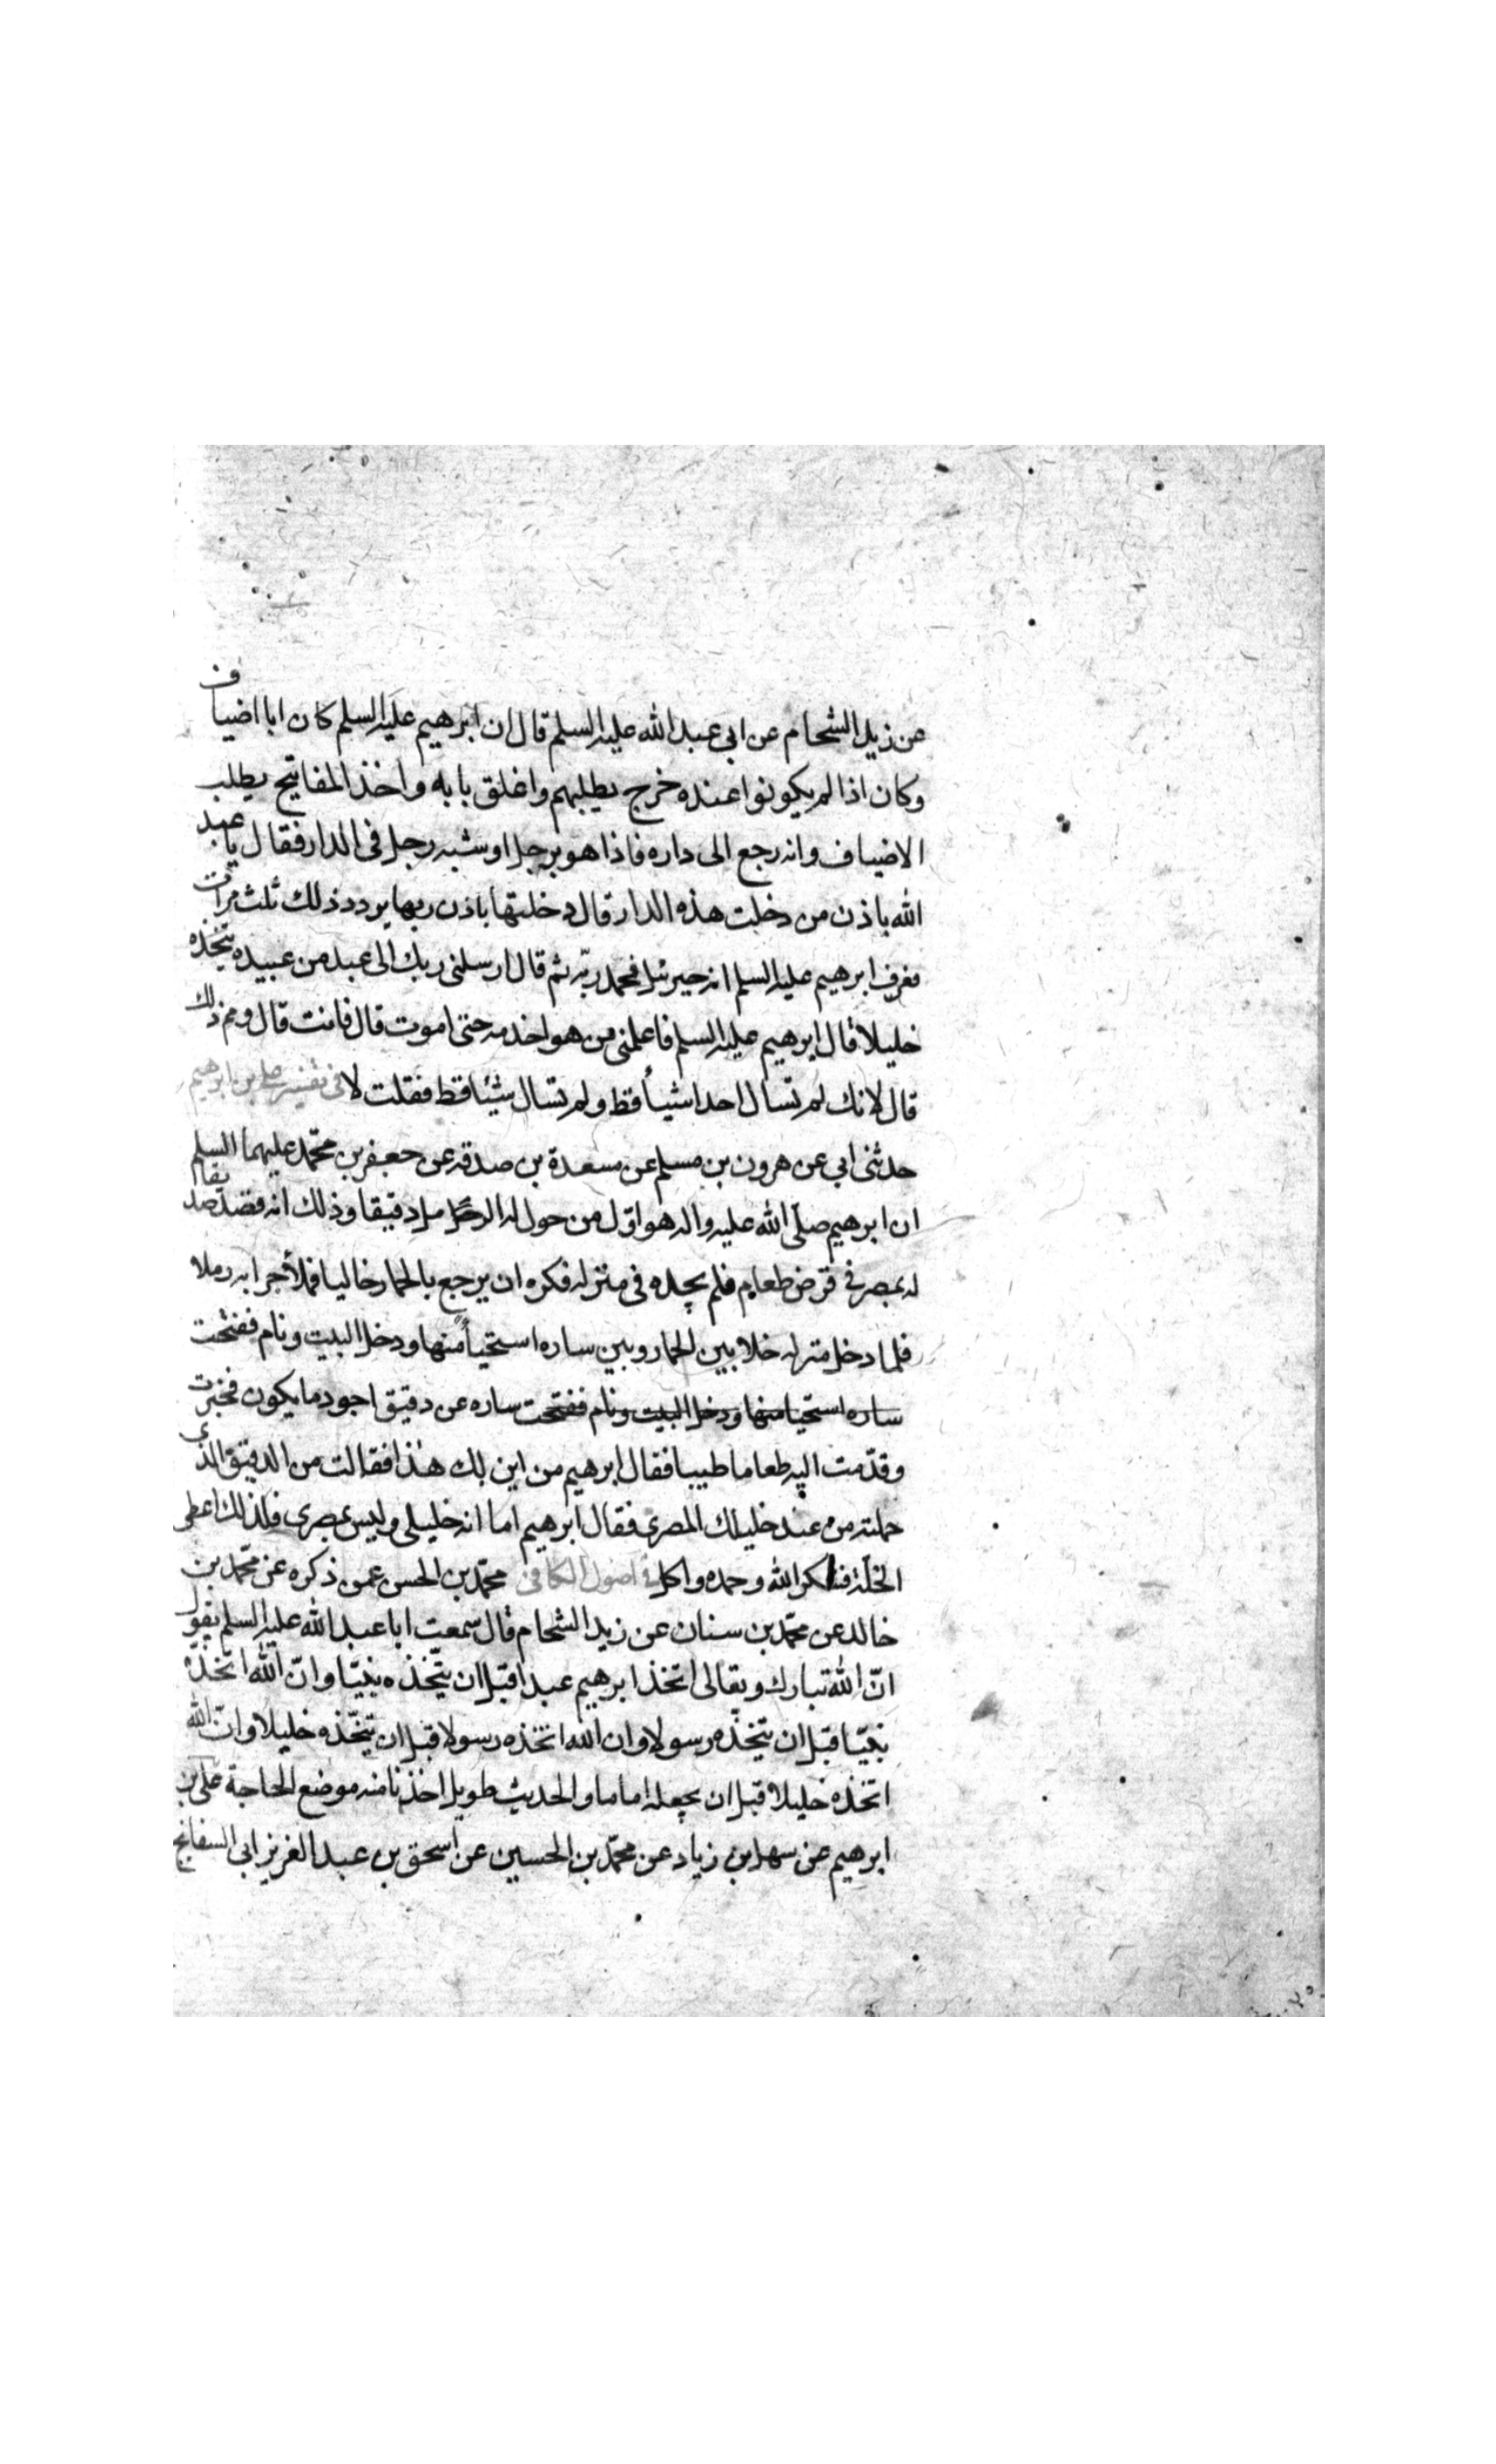 عن زيد الشحام عن ابي عبد الله عليه السلم قال ان ابرهيم عليه السلم كان ابا اضياف
وكان اذا لم يكونوا عنده خرج يطلبهم واغلق بابه واخذ المفاتيح يطلب
الاضياف وانه رجع الى داره فاذا هو برجل او شبه رجل فى الدار فقال يا عبد
الله باذن من دخلت هذه الدار قال دخلتها باذن ربها يردد ذلك ثلث مرات
فعرف ابرهيم عليه السلم انه جبرئيل فحمد ربّه ثم قال ارسلنى ربك الى عبد من عبيده يتّخذه
خليلا قال ابرهيم عليه السلم فاعلمنى من هو اخدمه حتى اموت قال فانت قال ومم ذلك
قال لانك لم تسال احدا شيئاً قط ولم تسال شيئا قط فقلت لا فى تفسير على بن ابرهيم
حدثنى ابي عن هرون بن مسلم عن مسعدة بن صدقه عن جعفر بن محمّد عليهما السلم
ان ابرهيم صلّى الله عليه واله هو اوّل من حول له الرمل دقيقا وذلك انه قصد صديقا
له بمصر فى قرض طعام فلم يجده فى منزله فكره ان يرجع بالحمار خاليا فملأ جرابه رملا
فلما دخل منزله خلا بين الحمار وبين ساره استحياً منها ودخل البيت ونام ففتحت
ساره استحيا منها ودخل البيت ونام ففتحت ساره عن دقيق اجود ما يكون فخبزت
وقدّمت اليه طعاما طيبا فقال ابرهيم من اين لك هذا فقالت من الدقيق الذى
حملته من عند خليلك المصرى فقال ابرهيم اما انه خليلى وليس بمصرى فلذلك اعطى
الخلّة فشكر الله وحمده واكل فى اصول الكافى محمّد بن الحسن عمن ذكره عن محمّد بن
خالد عن محمّد بن سنان عن زيد الشحام قال سمعت ابا عبد الله عليه السلم يقول
انّ الله تبارك وتعالى اتخذ ابرهيم عبدا قبل ان يتّخذه نبيّا وانّ الله اتخذه
نبيّا قبل ان يتخذه رسولا وان الله اتخذه رسولا قبل ان يتّخذه خليلا وانّ الله
اتخذه خليلا قبل ان يجعله اماما والحديث طويل اخذنا منه موضع الحاجة على بن
ابرهيم عن سهل بن زياد عن محمّد بن الحسين عن اسحق بن عبد العزيز ابى السفاتج